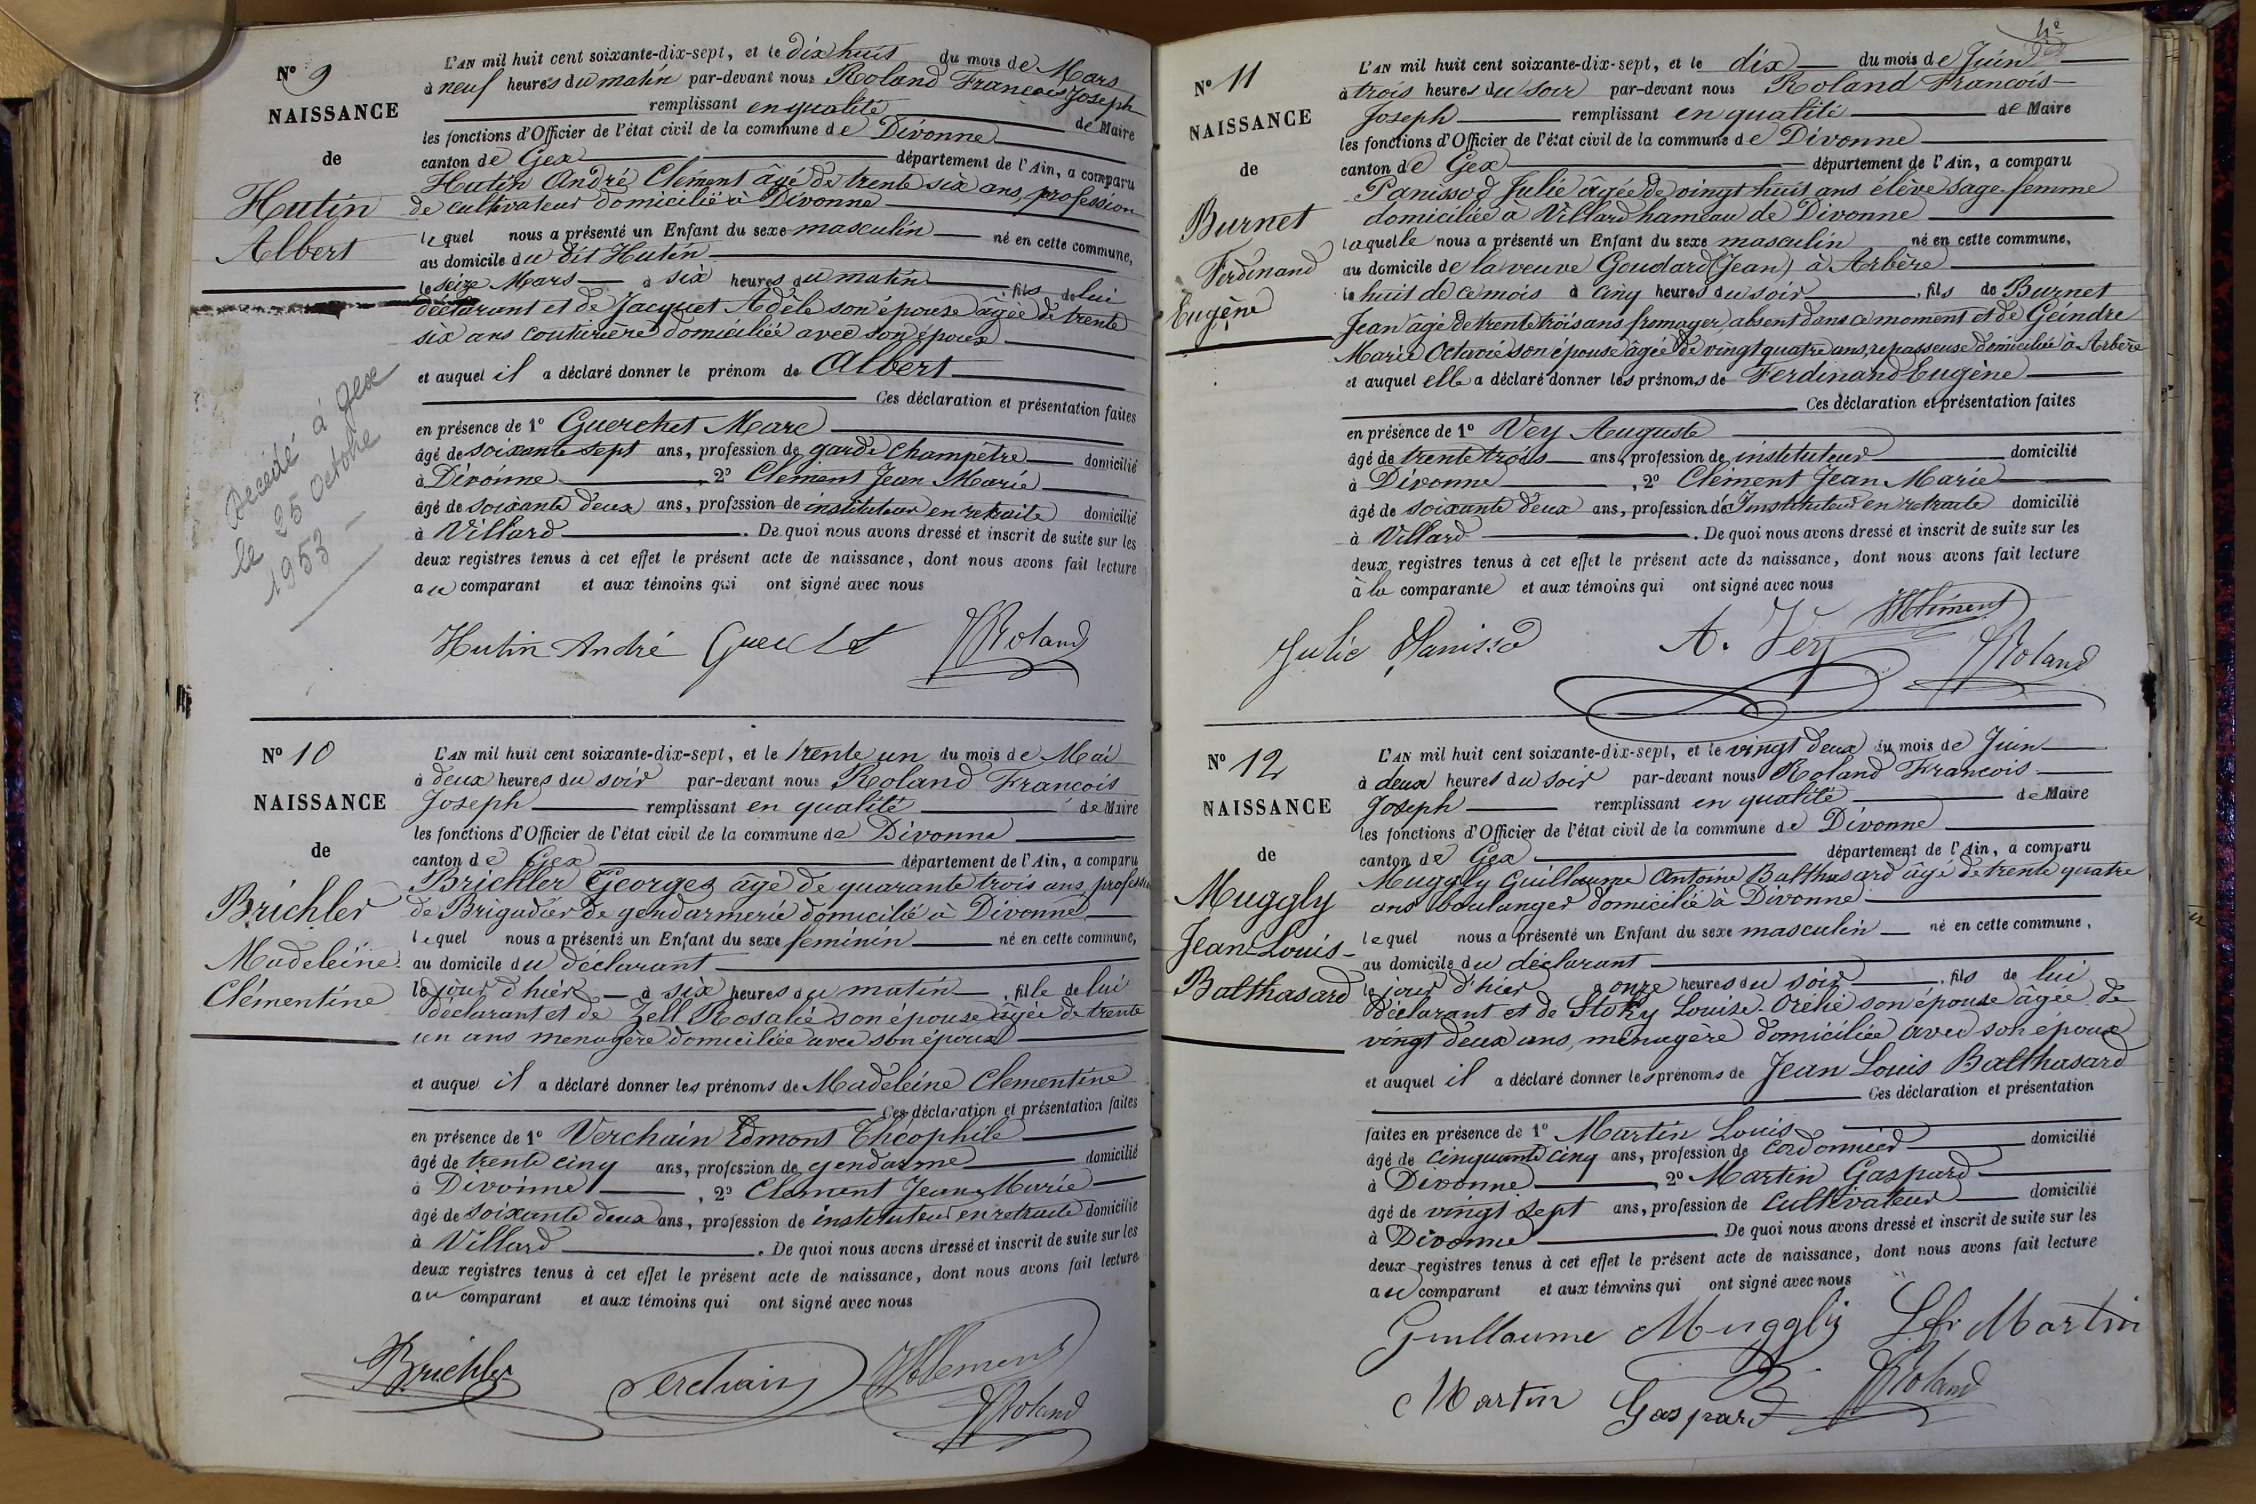 Nº 9
NAISSANCE
de
Hutin
Albert
Décédé à Gex
le 25 Octobre
1953
L'AN mil huit cent soixante-dix-sept, et le dix huit du mois de Mars
à neuf heures du matin par-devant nous Roland François Joseph
remplissant en qualité de Maire
les fonctions d'Officier de l'état civil de la commune de Divonne
canton de Gex département de l'Ain, a comparu
Hutin André Clément âgé de trente six ans, profession
de cultivateur domicilié à Divonne
lequel nous a présenté un Enfant du sexe masculin né en cette commune,
au domicile du dit Hutin
le seize Mars à six heures du matin, fils de lui
déclarant et de Jacquet Adèle son épouse âgée de trente
six ans couturière domiciliée avec son époux
et auquel il a déclaré donner le prénom de Albert
Ces déclaration et présentation faites
en présence de 1º Guerchet Marc
âgé de soixante sept ans, profession de garde champêtre domicilié
à Divonne, 2º Clément Jean Marie
âgé de soixante deux ans, profession de instituteur en retraite domicilié
à Villard. De quoi nous avons dressé et inscrit de suite sur les
deux registres tenus à cet effet le présent acte de naissance, dont nous avons fait lecture
au comparant et aux témoins qui ont signé avec nous
Hutin André Roland
Nº 10
NAISSANCE
de
Brichler
Madeleine
Clémentine
L'AN mil huit cent soixante-dix-sept, et le trente un du mois de Mai
à deux heures du soir par-devant nous Roland François
Joseph remplissant en qualité de Maire
les fonctions d'Officier de l'état civil de la commune de Divonne
canton de Gex département de l'Ain, a comparu
Brichler Georges âgé de quarante trois ans, profession
de Brigadier de gendarmerie domicilié à Divonne
lequel nous a présenté un Enfant du sexe feminin né en cette commune,
au domicile du déclarant
le jour d'hier à six heures du matin, fille de lui
déclarant et de Zell Rosalie son épouse âgée de trente
un ans menagère domiciliée avec son époux
et auquel il a déclaré donner les prénoms de Madeleine Clementine
Ces déclaration et présentation faites
en présence de 1º Verchain Edmond Théophile
âgé de trente cinq ans, profession de gendarme domicilié
à Divonne, 2º Clément Jean Marie
âgé de soixante deux ans, profession de instituteur en retraite domicilié
à Villard. De quoi nous avons dressé et inscrit de suite sur les
deux registres tenus à cet effet le présent acte de naissance, dont nous avons fait lecture
au comparant et aux témoins qui ont signé avec nous
Brichler Verchain Clement
Roland
Nº 11
NAISSANCE
de
Burnet
Ferdinand
Eugène
L'AN mil huit cent soixante-dix-sept, et le dix du mois de Juin
à trois heures du soir par-devant nous Roland François
Joseph remplissant en qualité de Maire
les fonctions d'Officier de l'état civil de la commune de Divonne
canton de Gex département de l'Ain, a comparu
Panissod Julie âgée de vingt huit ans élève sage femme
domiciliée à Villard hameau de Divonne
laquelle nous a présenté un Enfant du sexe masculin né en cette commune,
au domicile de la veuve Goudard (Jean) à Arbère
le huit de ce mois à cinq heures du soir, fils de Burnet
Jean âgé de trente trois ans, fromager, absent dans ce moment et de Geindre
Marie Octavie son épouse âgée de vingt quatre ans, repasseuse domiciliée à Arbère
et auquel elle a déclaré donner les prénoms de Ferdinand Eugène
Ces déclaration et présentation faites
en présence de 1º Vey Auguste
âgé de trente trois ans, profession de instituteur domicilié
à Divonne, 2º Clément Jean Marie
âgé de soixante deux ans, profession de Instituteur en retraite domicilié
à Villard. De quoi nous avons dressé et inscrit de suite sur les
deux registres tenus à cet effet le présent acte de naissance, dont nous avons fait lecture
à la comparante et aux témoins qui ont signé avec nous
Julie Panissod A. Vey Clément
Roland
Nº 12
NAISSANCE
de
Muggly
Jean-Louis-
Balthasard
L'AN mil huit cent soixante-dix-sept, et le vingt deux du mois de Juin
à deux heures du soir par-devant nous Roland François
Joseph remplissant en qualité de Maire
les fonctions d'Officier de l'état civil de la commune de Divonne
canton de Gex département de l'Ain, a comparu
Muggly Guillaume Antoine Balthasard âgé de trente quatre
ans boulanger domicilié à Divonne
lequel nous a présenté un Enfant du sexe masculin né en cette commune,
au domicile du déclarant
le jour d'hier à onze heures du soir, fils de lui
déclarant et de Stoky Louise son épouse âgée de
vingt deux ans, ménagère domiciliée avec son époux
et auquel il a déclaré donner les prénoms de Jean Louis Balthasard
Ces déclaration et présentation
faites en présence de 1º Martin Louis
âgé de cinquante cinq ans, profession de cordonnier domicilié
à Divonne, 2º Martin Gaspard
âgé de vingt sept ans, profession de cultivateur domicilié
à Divonne. De quoi nous avons dressé et inscrit de suite sur les
deux registres tenus à cet effet le présent acte de naissance, dont nous avons fait lecture
au comparant et aux témoins qui ont signé avec nous
Guillaume Muggly Martin
Martin Gaspard Roland